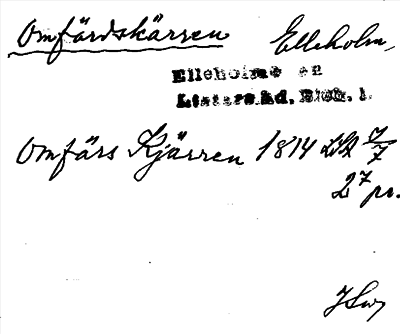 Omfärdskärren Elleholm,
Elleholms sn
Listers hd, Blek. l.
Omfärs Kjärren 1814 LSA 7/7
27 pr.